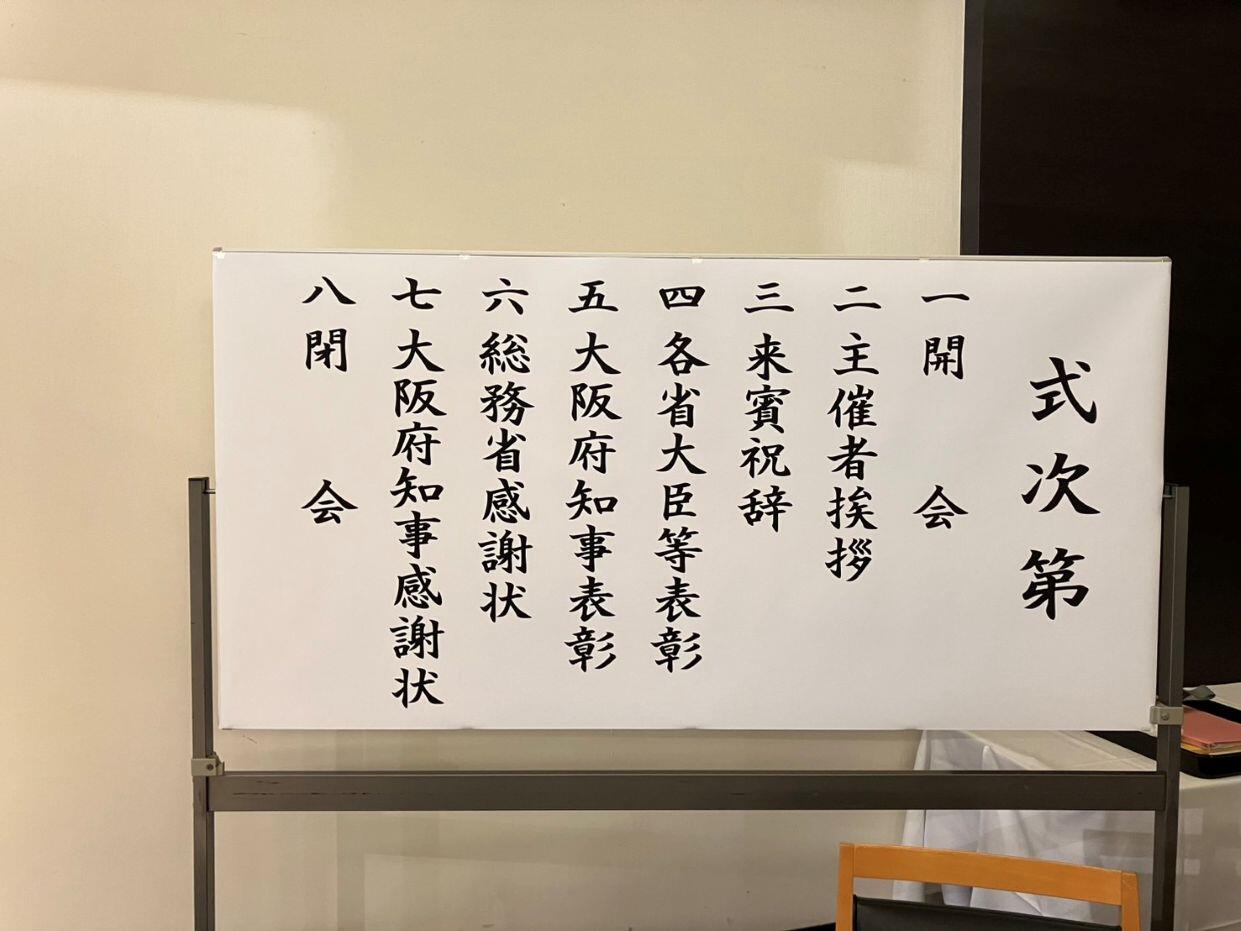 式次第
一 開会
二 主催者挨拶
三 来賓祝辞
四 各省大臣等表彰
五 大阪府知事表彰
六 総務省感謝状
七 大阪府知事感謝状
八 閉会